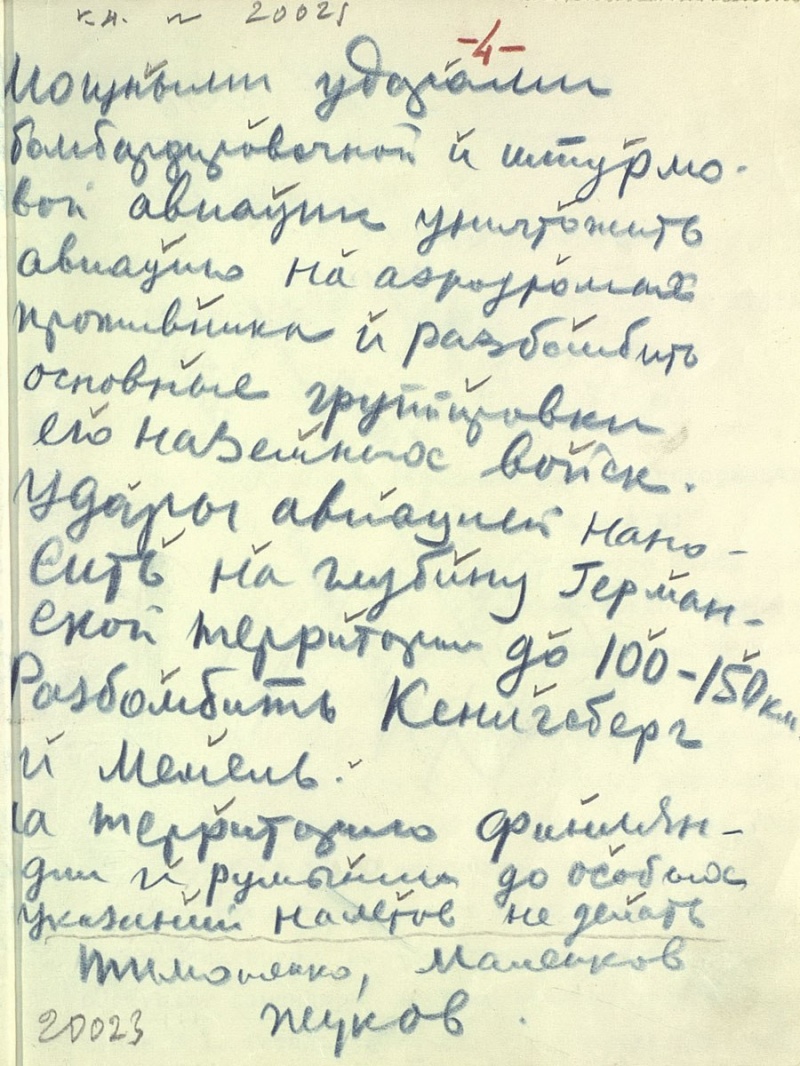 20023
-4-
Мощными ударами
бомбардировочной и штурмо-
вой авиации уничтожить
авиацию на аэродромах
противника и разбомбить
основные группировки
его наземных войск.
Удары авиацией нано-
сить на глубину Герман-
ской территории до 100-150 км.
Разбомбить Кенигсберг
и Мемель.
на территорию Финлян-
дии и румынии до особых
указаний налетов не делать
Тимошенко, Маленков
Жуков.
20023